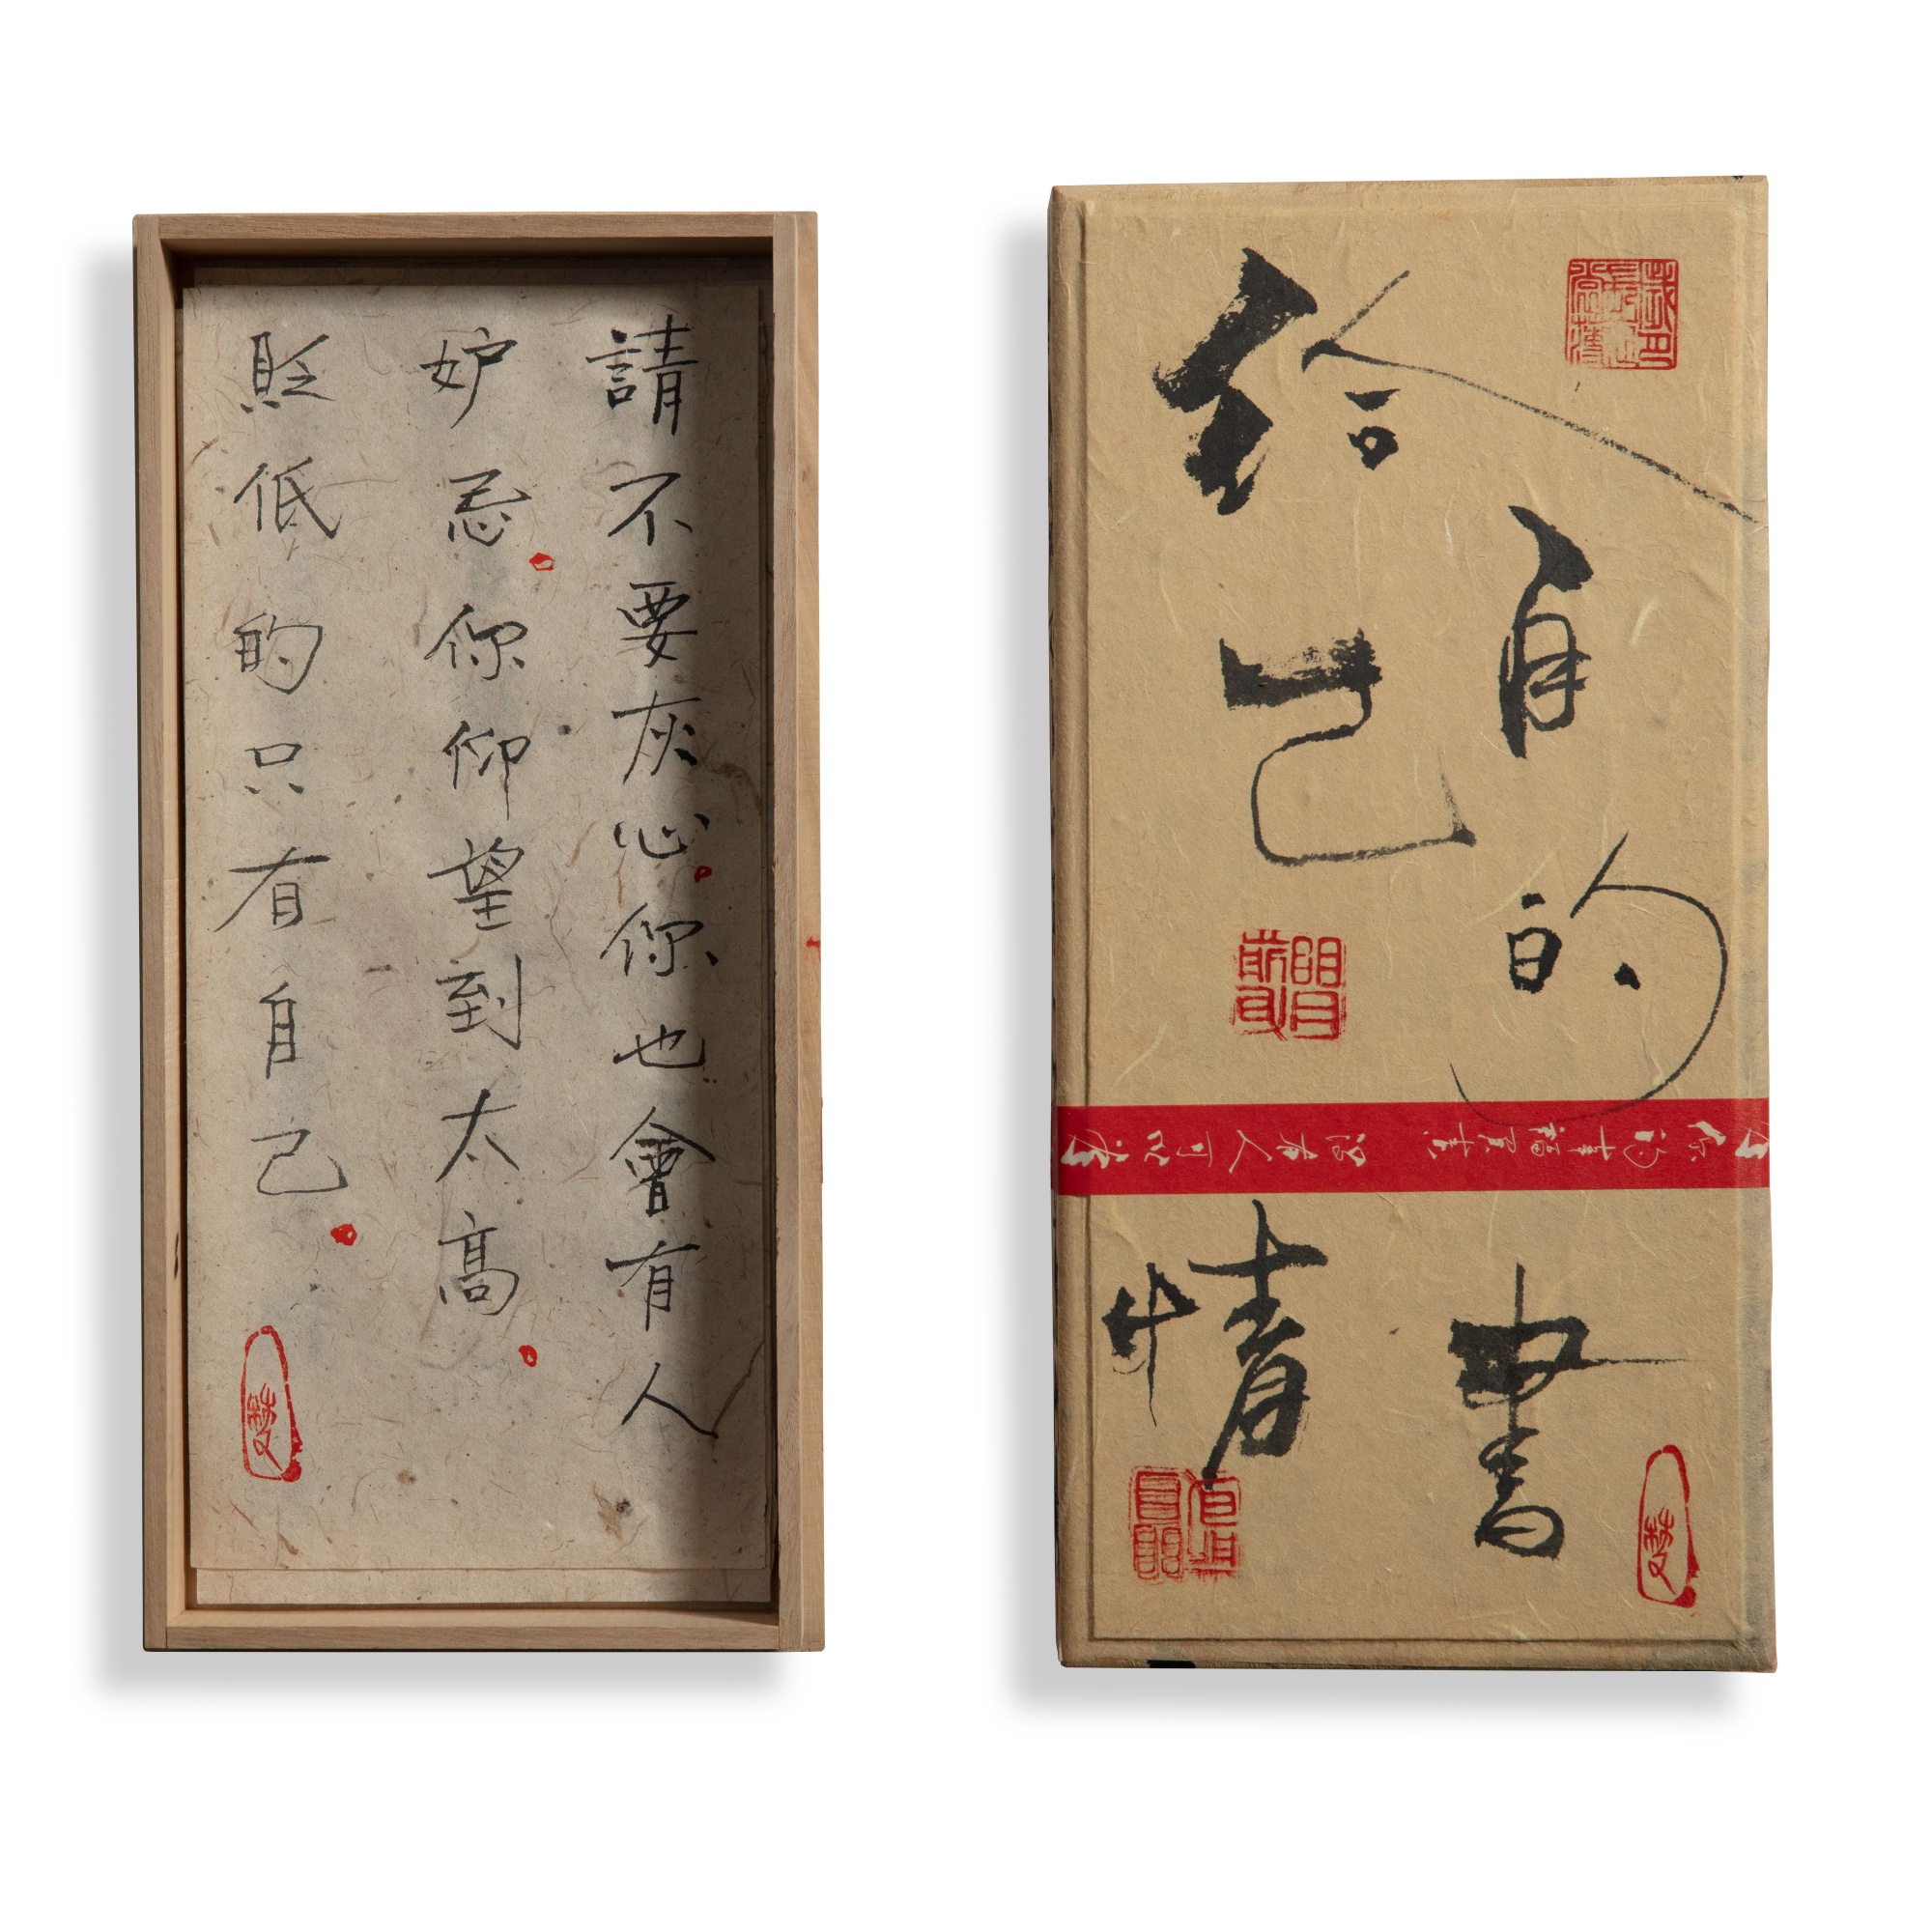 請不要灰心。你也會有人
妒忌。你仰望到太高。
貶低的只有自己。
給自己的情書
歲月長衣裳薄